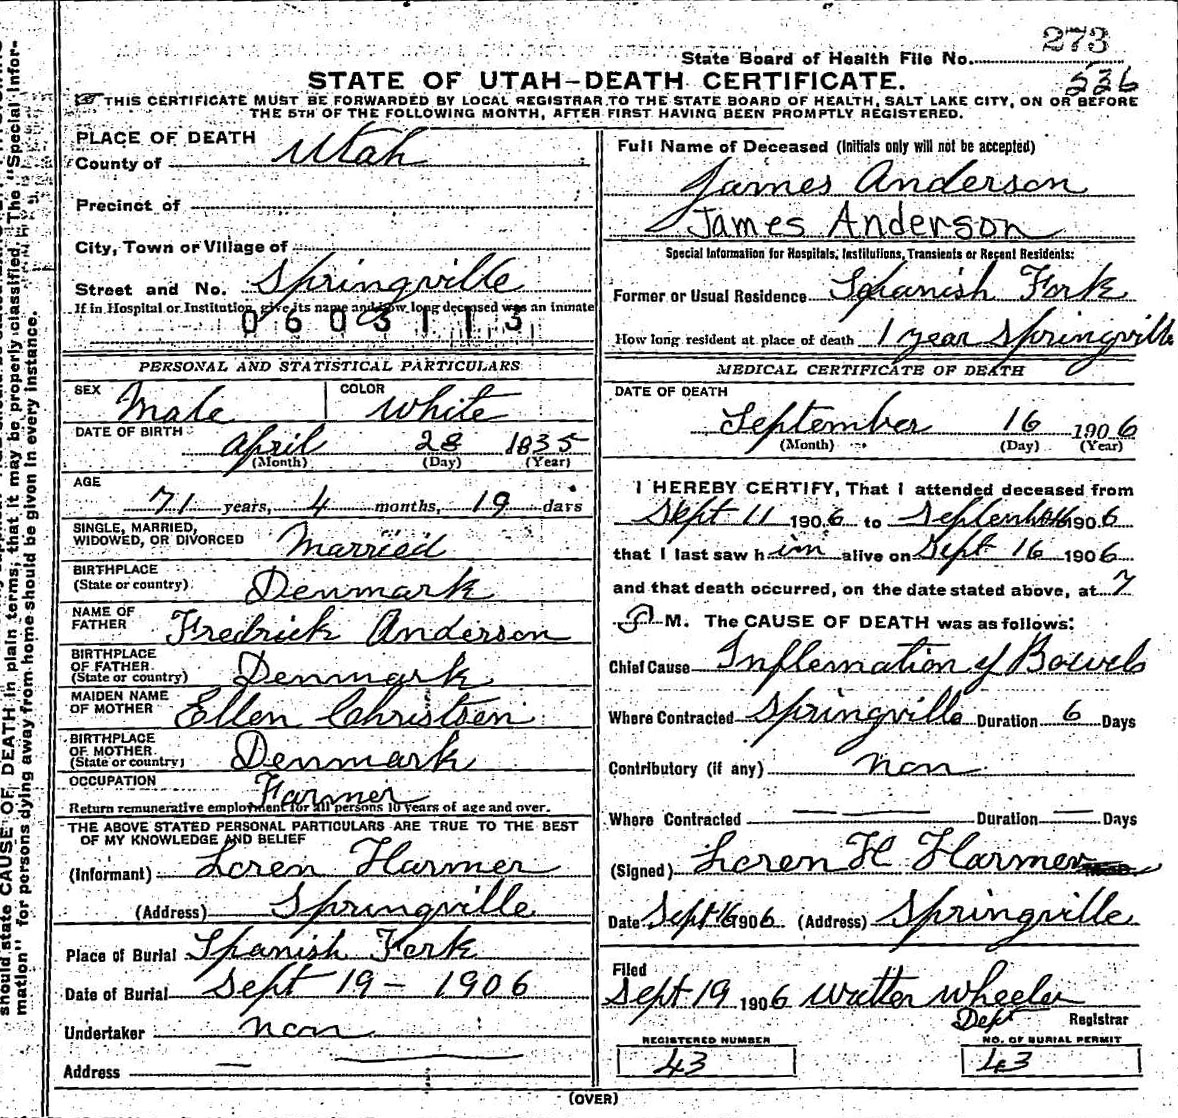 273
State Board of Health File No.
536
STATE OF UTAH-DEATH CERTIFICATE.
THIS CERTIFICATE MUST BE FORWARDED BY LOCAL REGISTRAR TO THE STATE BOARD OF HEALTH, SALT LAKE CITY, ON OR BEFORE
THE 5TH OF THE FOLLOWING MONTH, AFTER FIRST HAVING BEEN PROMPTLY REGISTERED.
should state CAUSE OF DEATH in plain terms, that it may be properly classified. The "Special Infor-
mation" for persons dying away from home should be given in every instance.
PLACE OF DEATH
County of Utah
Precinct of
City, Town or Village of
Street and No. Springville
If in Hospital or Institution, give its name and how long deceased was an inmate
0603113
PERSONAL AND STATISTICAL PARTICULARS
SEX Male COLOR White
DATE OF BIRTH April 28 1835
(Month) (Day) (Year)
AGE
71 years, 4 months, 19 days
SINGLE, MARRIED,
WIDOWED, OR DIVORCED Married
BIRTHPLACE
(State or country) Denmark
NAME OF
FATHER Fredrick Anderson
BIRTHPLACE
OF FATHER
(State or country) Denmark
MAIDEN NAME
OF MOTHER Ellen Christsen
BIRTHPLACE
OF MOTHER
(State or country) Denmark
OCCUPATION Farmer
Return remunerative employment for all persons 10 years of age and over.
THE ABOVE STATED PERSONAL PARTICULARS ARE TRUE TO THE BEST
OF MY KNOWLEDGE AND BELIEF
(Informant) Loren Harmer
(Address) Springville
Place of Burial Spanish Fork
Date of Burial Sept 19 - 1906
Undertaker non
Address
Full Name of Deceased (Initials only will not be accepted)
James Anderson
James Anderson
Special Information for Hospitals, Institutions, Transients or Recent Residents:
Former or Usual Residence Spanish Fork
How long resident at place of death 1 year Springville
MEDICAL CERTIFICATE OF DEATH
DATE OF DEATH
September 16 1906
(Month) (Day) (Year)
I HEREBY CERTIFY, That I attended deceased from
Sept 11 1906 to September 16 1906
that I last saw him alive on Sept 16 1906
and that death occurred, on the date stated above, at 7
P M. The CAUSE OF DEATH was as follows:
Chief Cause Inflemation of Bowels
Where Contracted Springville Duration 6 Days
Contributory (if any) non
Where Contracted Duration Days
(Signed) Loren H Harmer
Date Sept 16 1906 (Address) Springville
Filed
Sept 19 1906 Walter Wheeler
Dept Registrar
REGISTERED NUMBER
43
NO. OF BURIAL PERMIT
43
(OVER)